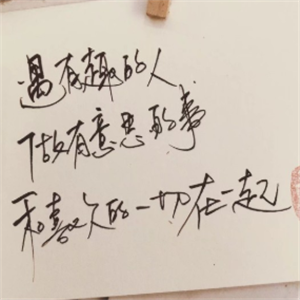 遇有趣的人
做有意思的事
和喜欢的一切在一起